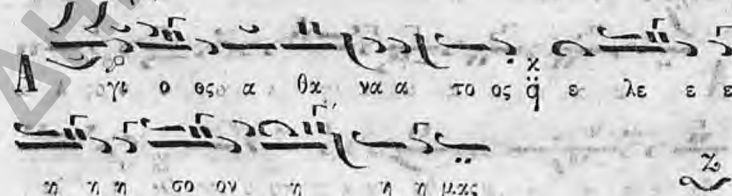 Α γι ο ος α θα να α το ος ε λε ε ε
η η η σο ον η η η μας